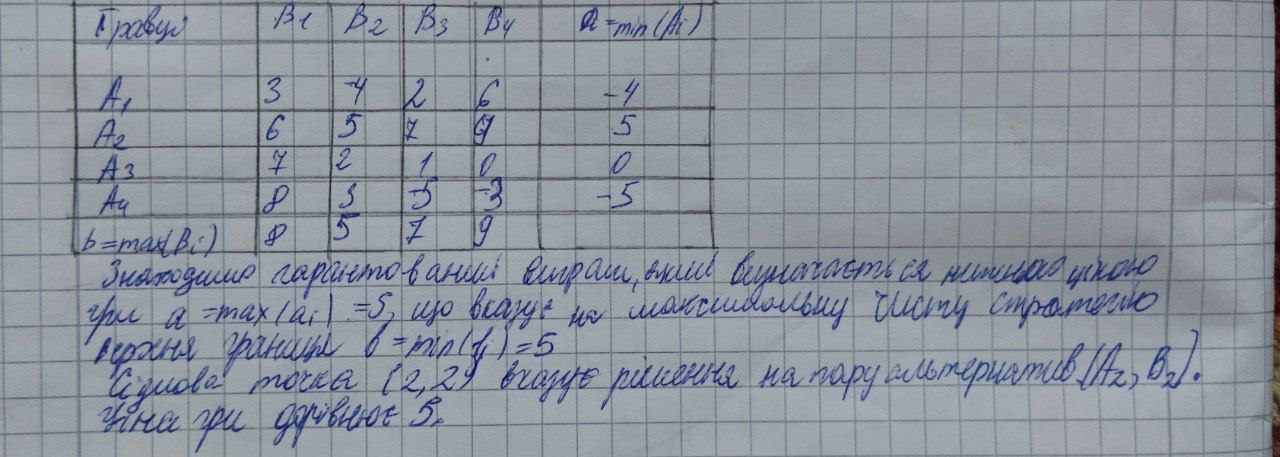 Гравці B1 B2 B3 B4 a=min(Ai)
A1 3 -4 2 6 -4
A2 6 5 7 9 5
A3 7 2 1 0 0
A4 8 3 -5 -3 -5
b=max(Bi) 8 5 7 9
Знаходимо гарантований виграш, який визначається нижньою ціною
гри a =max(ai) =5, що вказує на максимальну чисту стратегію
верхня границя b=min(bj)=5
Сідлова точка (2,2) вказує рішення на пару альтернатив (A2, B2).
Ціна гри дорівнює 5.